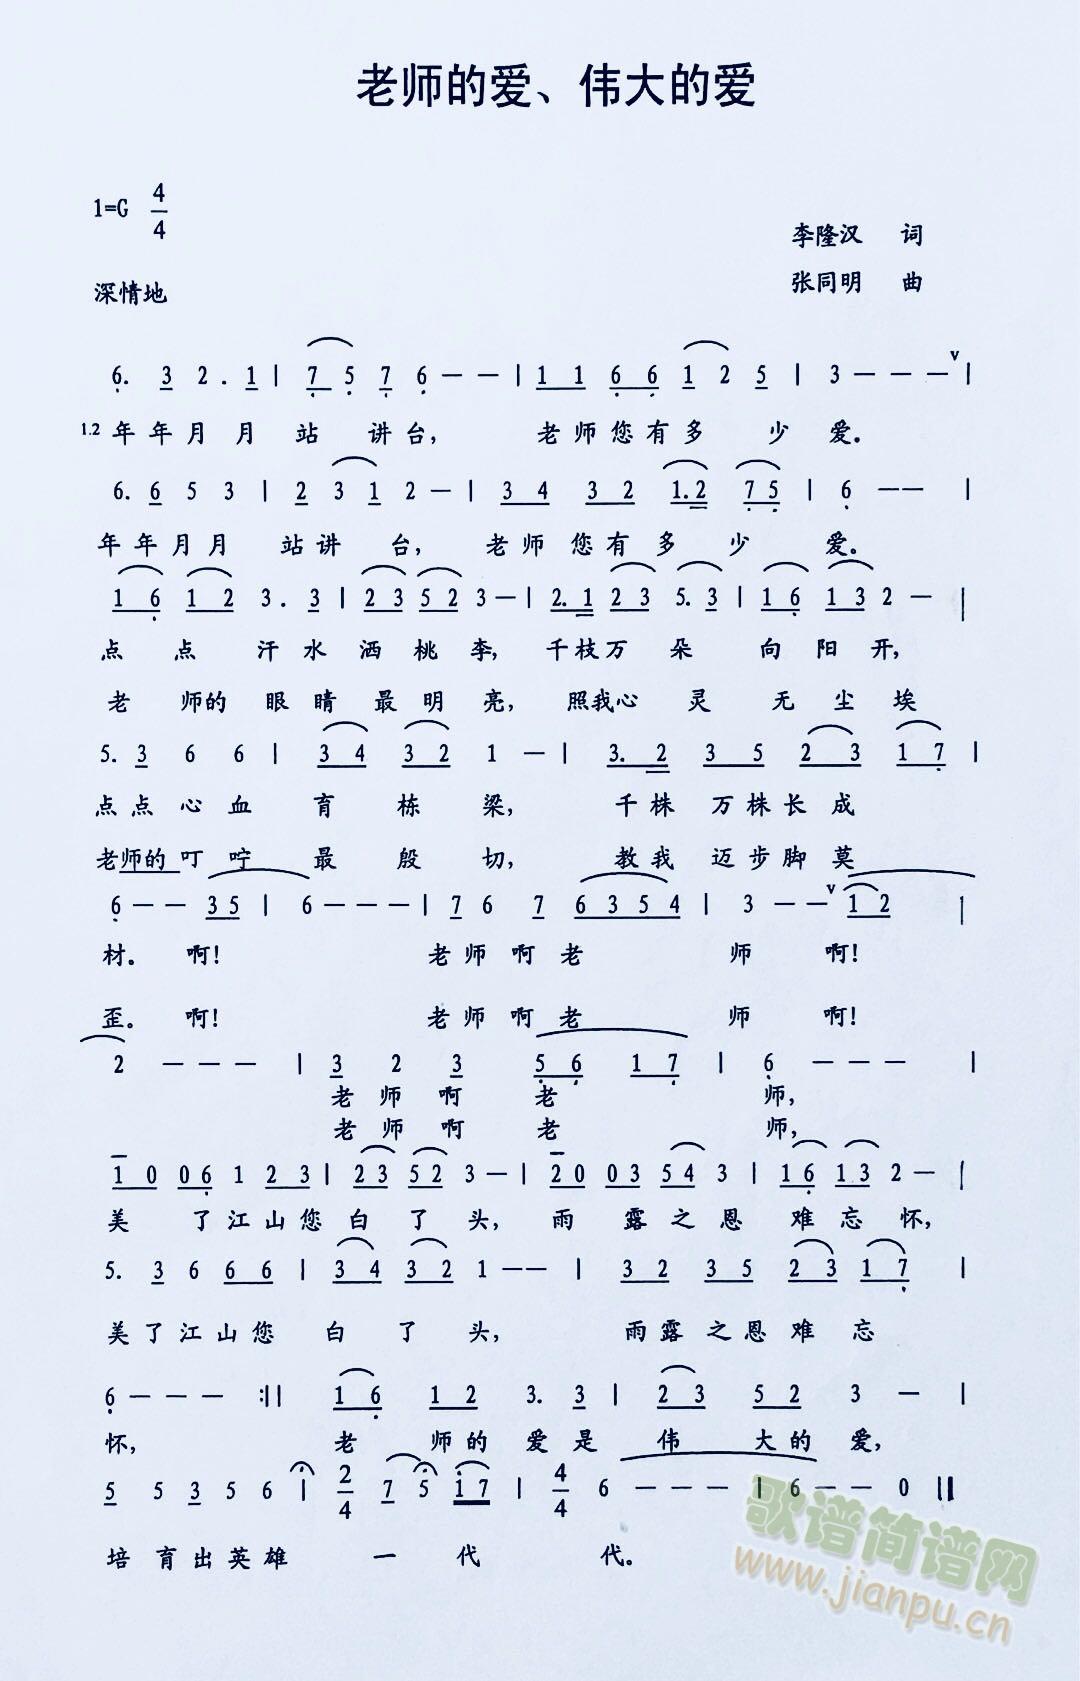 老师的爱、伟大的爱
1=G 4/4
李隆汉 词
深情地
张同明 曲
6. 3 2 . 1 | 7 5 7 6 — — | 1 1 6 6 1 2 5 | 3 — — — v |
1.2 年年月月站讲台, 老师您有多少爱。
6. 6 5 3 | 2 3 1 2 — | 3 4 3 2 1.2 7 5 | 6 — — |
年年月月站讲台, 老师您有多少爱。
1 6 1 2 3 . 3 | 2 3 5 2 3 — | 2. 1 2 3 5. 3 | 1 6 1 3 2 — |
点点汗水洒桃李, 千枝万朵向阳开,
老师的眼睛最明亮, 照我心灵无尘埃
5. 3 6 6 | 3 4 3 2 1 — | 3. 2 3 5 2 3 1 7 |
点点心血育栋梁, 千株万株长成
老师的叮咛最殷切, 教我迈步脚莫
6 — — 3 5 | 6 — — — | 7 6 7 6 3 5 4 | 3 — — v 1 2 |
材。啊! 老师啊老师啊!
歪。啊! 老师啊老师啊!
2 — — — | 3 2 3 5 6 1 7 | 6 — — — |
老师啊老师,
老师啊老师,
1 0 0 6 1 2 3 | 2 3 5 2 3 — | 2 0 0 3 5 4 3 | 1 6 1 3 2 — |
美了江山您白了头, 雨露之恩难忘怀,
5. 3 6 6 6 | 3 4 3 2 1 — — | 3 2 3 5 2 3 1 7 |
美了江山您白了头, 雨露之恩难忘
6 — — — :|| 1 6 1 2 3. 3 | 2 3 5 2 3 — |
怀, 老师的爱是伟大的爱,
5 5 3 5 6 | 2/4 7 5 1 7 | 4/4 6 — — — | 6 — — 0 ||
培育出英雄一代代。
歌谱简谱网
www.jianpu.cn